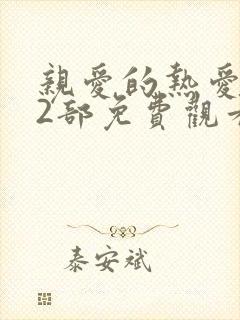 親愛的熱愛
2部免費觀
泰安斌